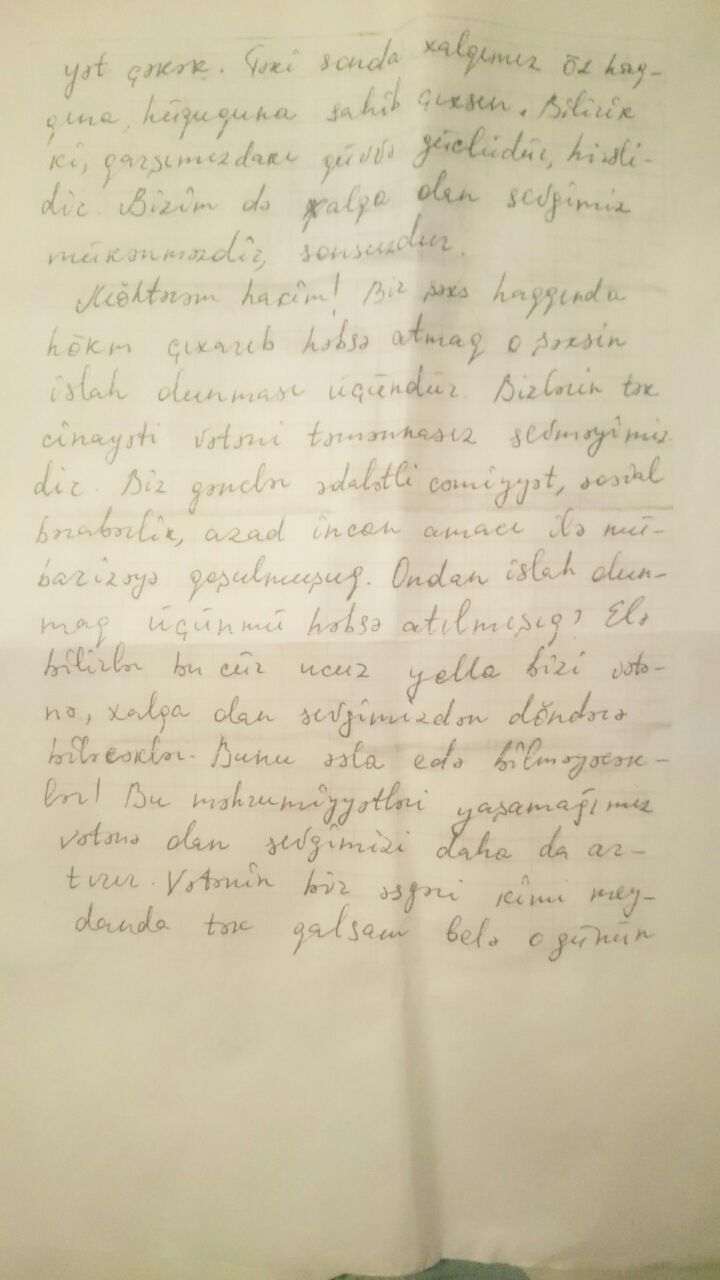 yət çəkək. Təki sonda xalqımız öz haq-
qına, hüququna sahib çıxsın. Bilirik
ki, qarşımızdakı qüvvə güclüdür, hirsli-
dir. Bizim də xalqa olan sevgimiz
mükəmməzdir, sonsuzdur.
Möhtərəm hakim! Bir şəxs haqqında
hökm çıxarıb həbsə atmaq o şəxsin
islah olunması üçündür. Bizlərin tək
cinayəti vətəni təmənnasız sevməyimiz-
dir. Biz gənclər ədalətli cəmiyyət, sosial
bərabərlik, azad incan amacı ilə mü-
barizəyə qoşulmuşuq. Ondan islah olun-
maq üçünmü həbsə atılmışıq? Elə
bilirlər bu cür ucuz yolla bizi vətə-
nə, xalqa olan sevgimizdən döndərə
biləcəklər. Bunu əsla edə bilməyəcək-
lər! Bu məhrumiyyətləri yaşamağımız
vətənə olan sevgimizi daha da ar-
tırır. Vətənin bir əsgəri kimi mey-
danda tək qalsam belə o günün